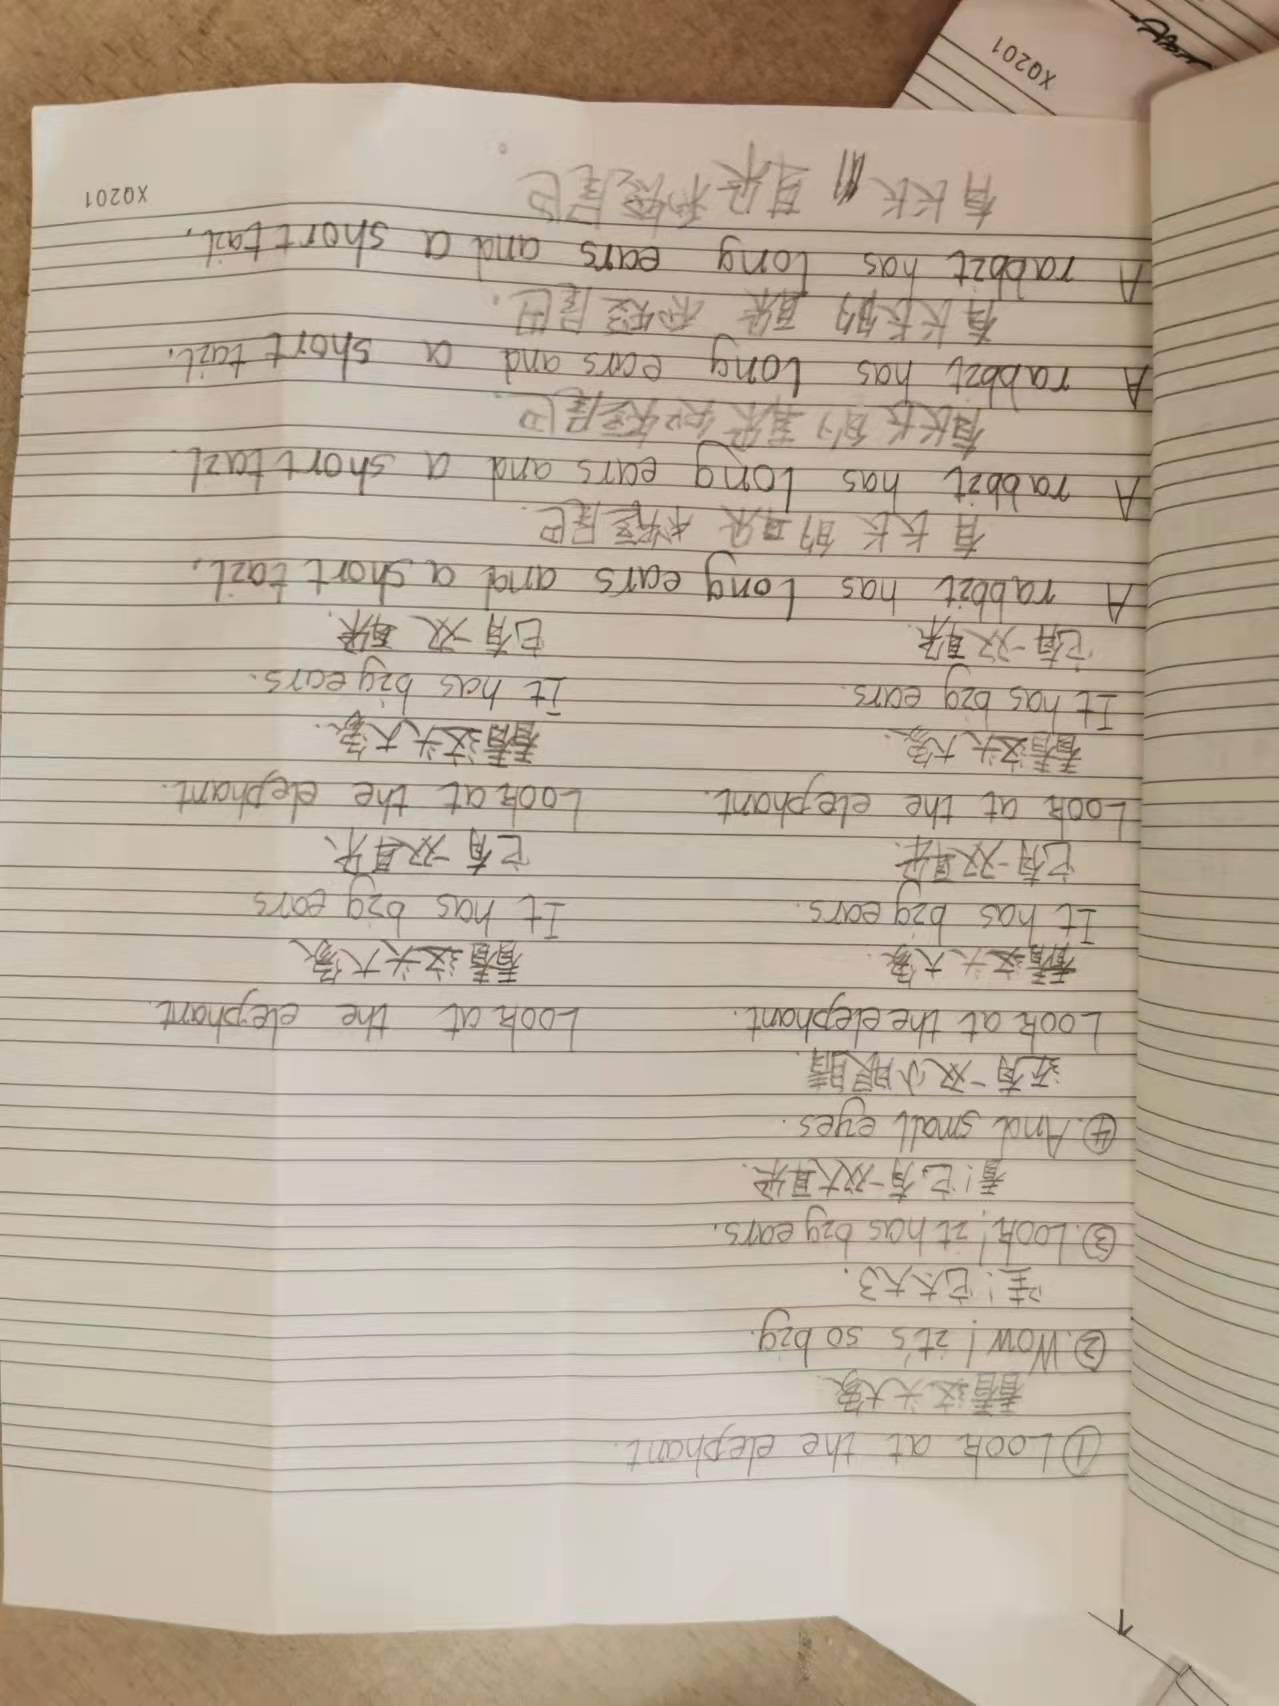 ①Look at the elephant.
看看这头大象.
②.Wow! it's so big.
哇!它太大了.
③.Look! it has big ears.
看!它有一双大耳朵.
④.And small eyes.
还有一双小眼睛.
Look at the elephant. Look at the elephant.
看看这头大象. 看看这头大象
It has big ears. It has big ears
它有一双耳朵. 它有一双耳朵.
Look at the elephant. Look at the elephant.
看看这头大象. 看看这头大象.
It has big ears. It has big ears.
它有一双耳朵. 它有一双耳朵.
A rabbit has long ears and a short tail.
有长长的耳朵 短尾巴.
A rabbit has long ears and a short tail.
有长长的耳朵和短尾巴.
A rabbit has long ears and a short tail.
有长长的耳朵和短尾巴.
A rabbit has long ears and a short tail.
有长长 耳朵和短尾巴
XQ201
XQ201